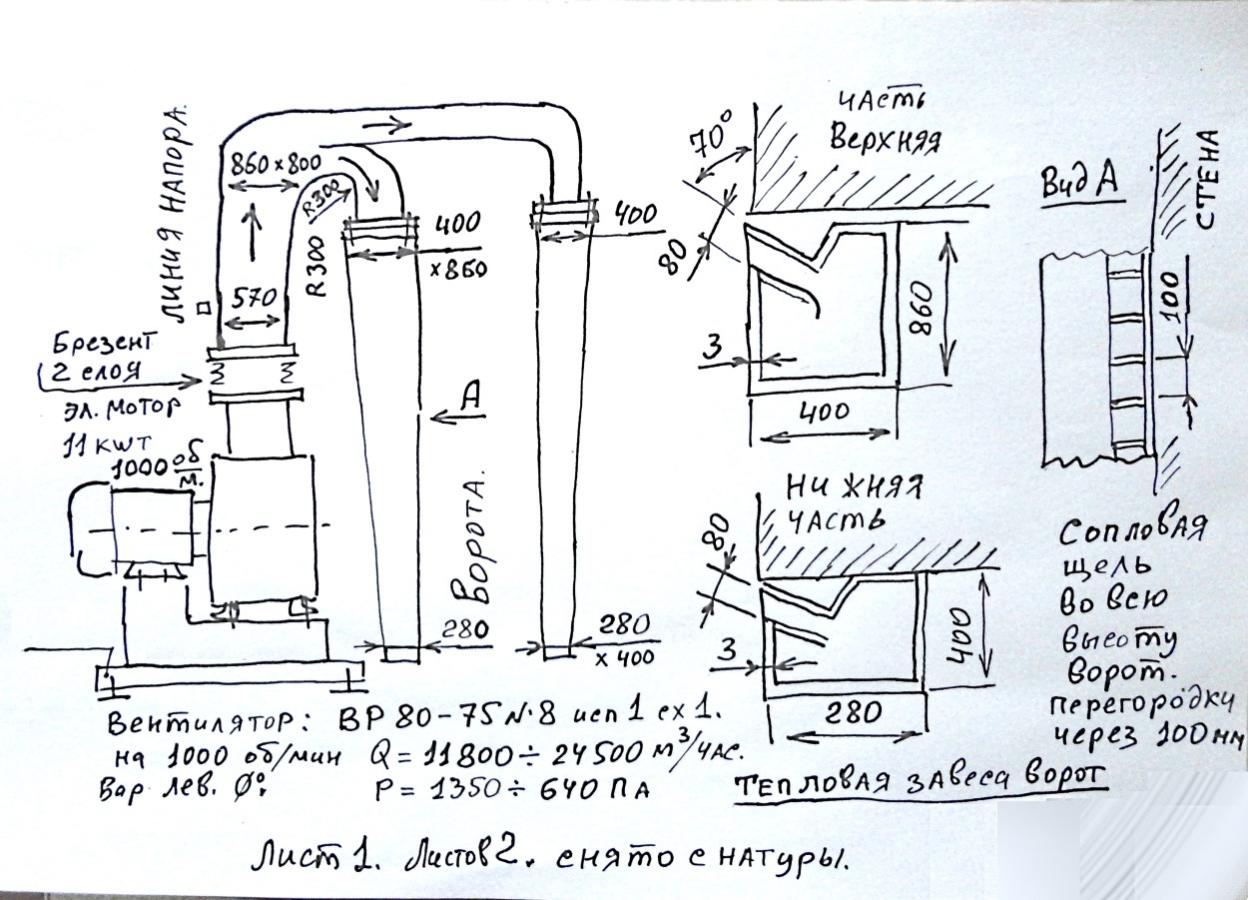 ЛИНИЯ НАПОРА.
860×800
R300
R300
400
×860
400
□ 570
Брезент
2 слоя
эл. мотор
11 кwт
1000 об/м.
А
ВОРОТА.
280
280
× 400
Вентилятор: ВР 80-75 №8 исп 1 сх 1.
на 1000 об/мин Q = 11800 ÷ 24500 м³/час.
Вар. лев. 0°:
Р = 1350 ÷ 640 ПА
Лист 1. Листов 2. снято с натуры.
часть
Верхняя
70°
80
3
860
400
НИЖНЯЯ
часть
80
3
400
280
Вид А
СТЕНА
100
Сопловая
щель
во всю
высоту
ворот.
перегородки
через 100 мм
ТЕПЛОВАЯ ЗАВЕСА ВОРОТ